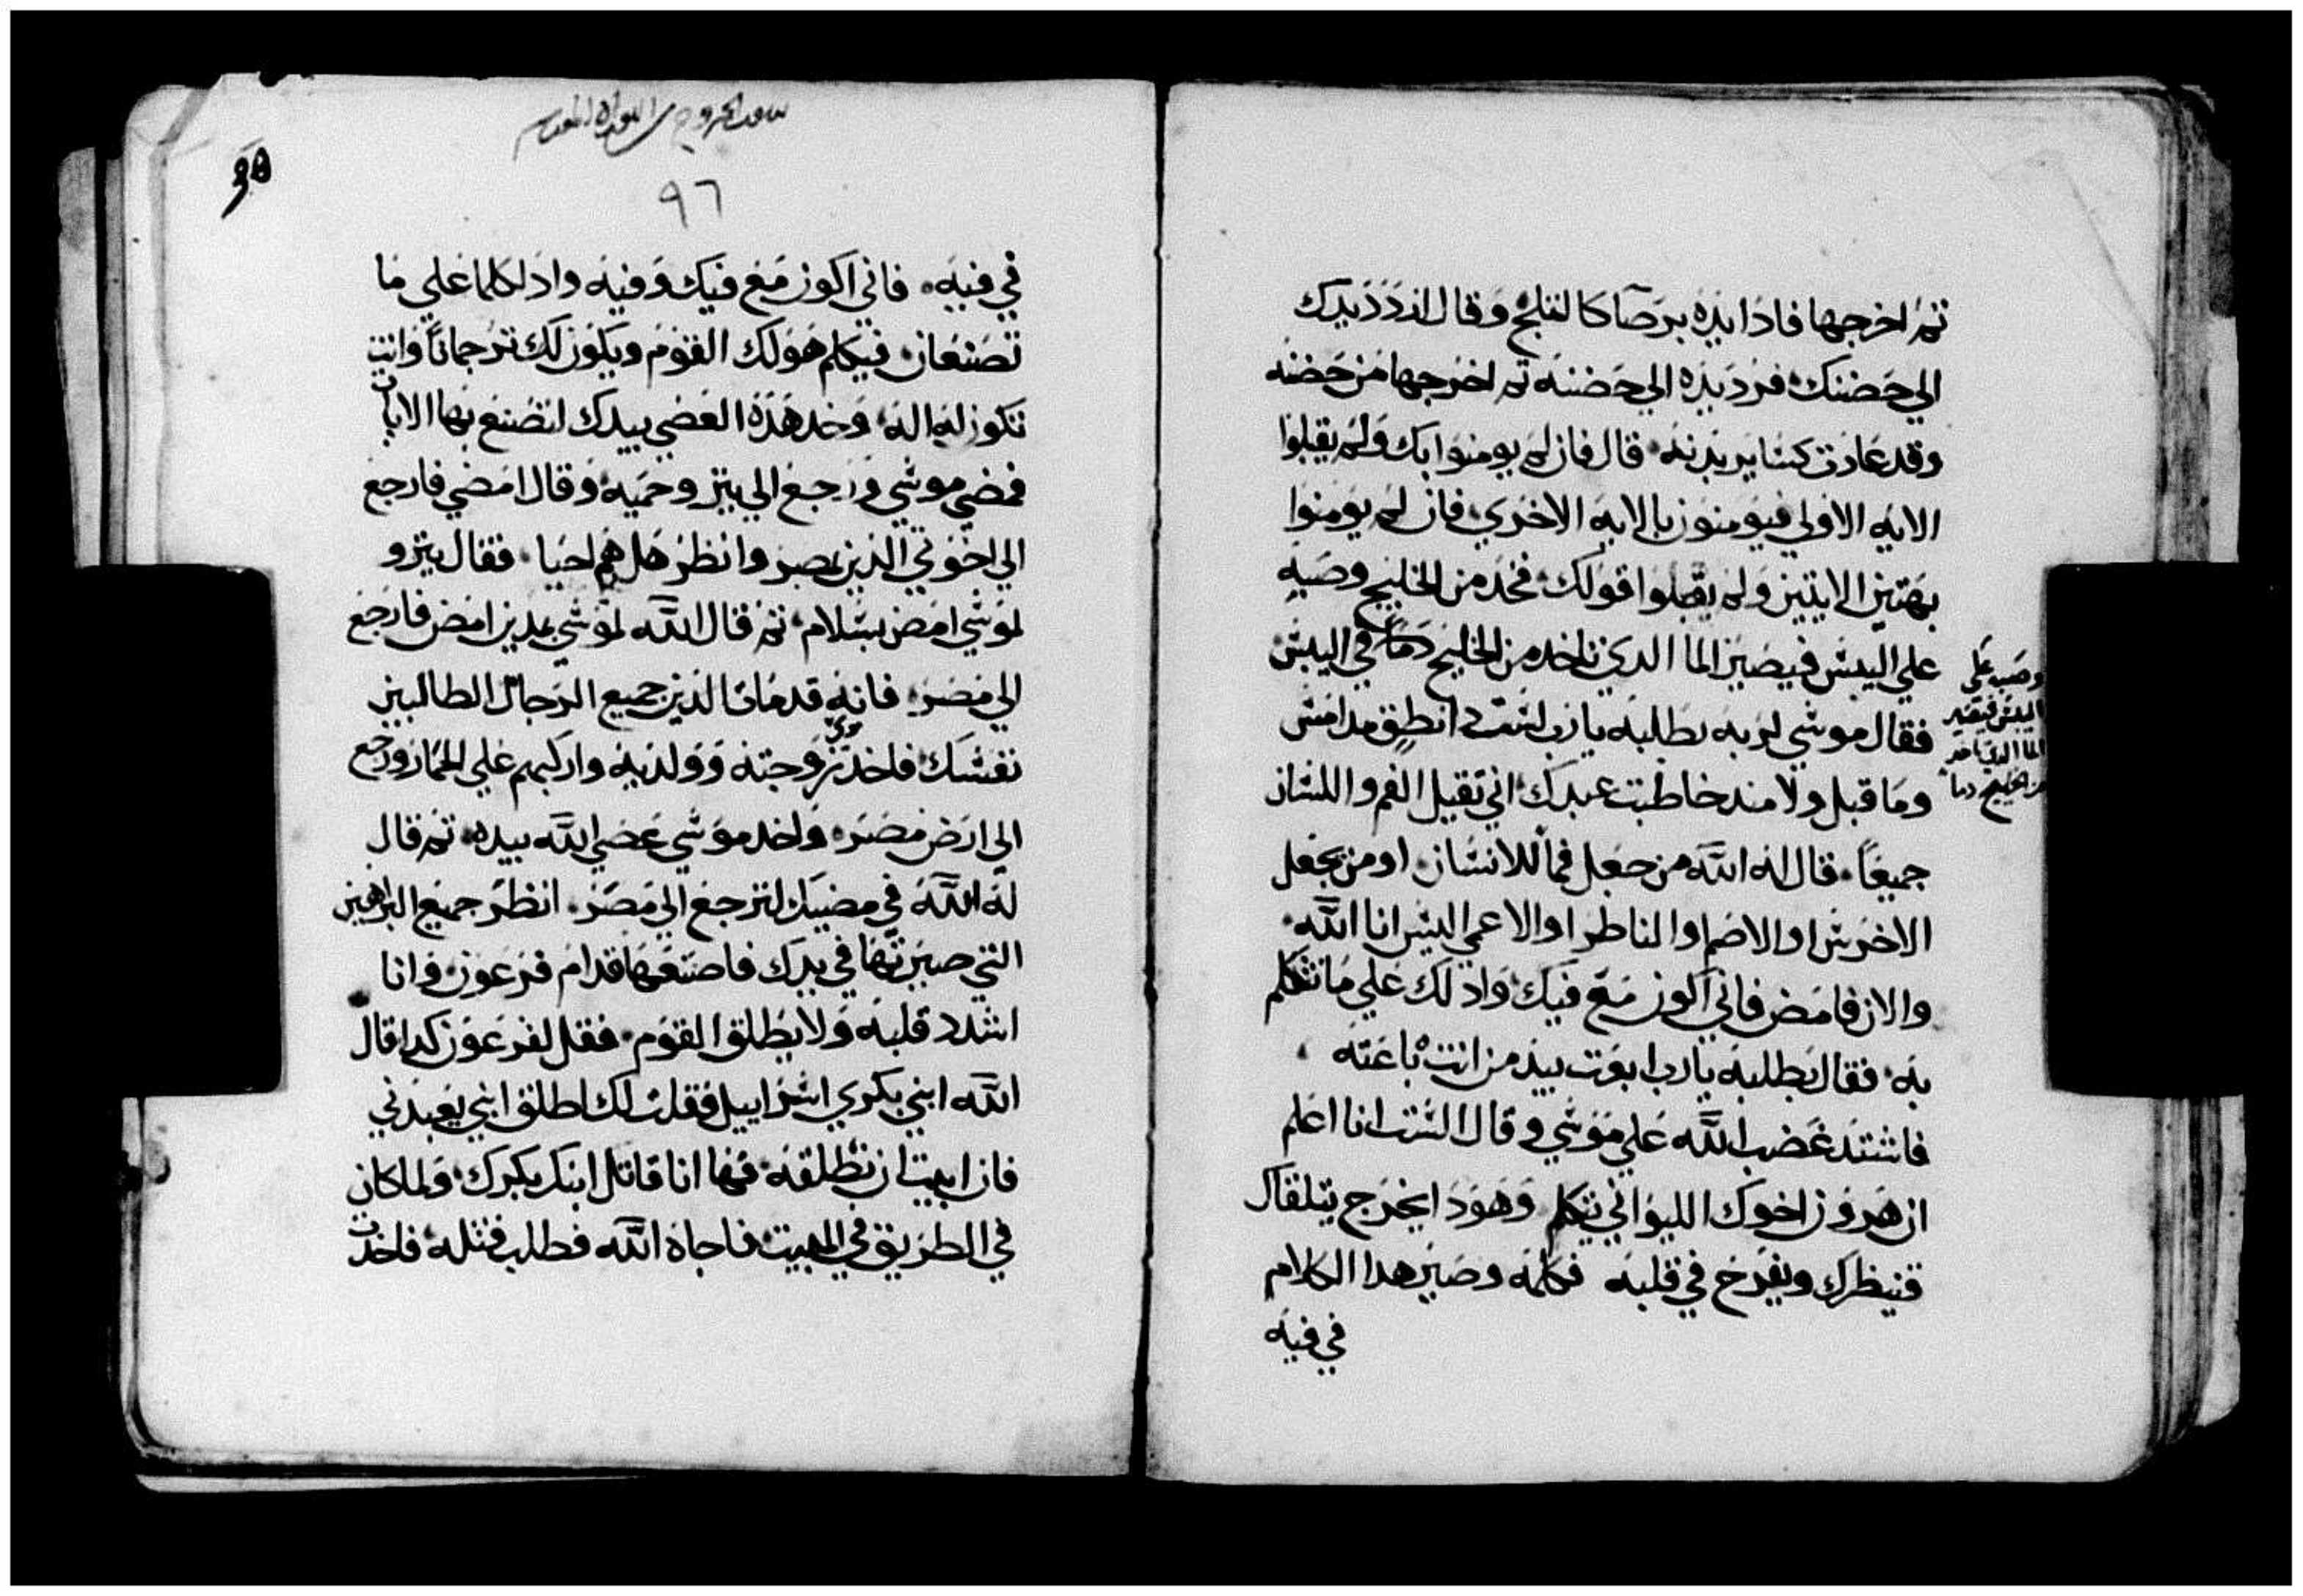 ثم اخرجها فاذا يده برصا كالثلج وقال اردد يدك
الي حضنك فرد يده الي حضنه ثم اخرجها من حضنه
وقد عادت كسا بدنه قال فان لم يومنوا بك ولم يقبلوا
الايه الاولي فيومنون بالايه الاخري فان لم يومنوا
بهتين الايتين ولم يقبلوا قولك فخد من الخليج وصبه
علي اليبس فيصير الما الدي تاخد من الخليج دما في اليبس
فقال موسي لربه بطلبه يارب لست انطق مد امس
وما قبل ولا مند خاطبت عبدك اني تقيل الفم واللسان
جميعا قال له الله من جعل فما للانسان او من يجعل
الاخرس او الاصم او الناطر او الاعمي اليس انا الله
والان فامض فاني اكون مع فيك وادلك علي ما تتكلم
به فقال بطلبه يارب ابعت بيد من انت باعته
فاشتد غضب الله علي موسي وقال الست انا اعلم
ان هرون اخوك الليواني يتكلم وهودا يخرج يتلقاك
فينظرك ويفرح في قلبه فكلمه وصير هدا الكلام
في فيه
وصب علي
اليبس فيصير
الما الدي تاخد
من الخليج دما
سفر الخروج من التوراه المقدسه
٩٦
في فيه فاني اكون مع فيك وفيه وادلكما علي ما
تصنعان فيكلم هو لك القوم ويكون لك ترجمانا وانت
تكون له اله وخد هده العصي بيدك لتصنع بها الايات
فمضي موسي ورجع الي يترو حميه وقال امضي فارجع
الي اخوتي الدين بمصر وانظر هل هم احيا فقال يترو
لموسي امض بسلام ثم قال الله لموسي بمدين امض فارجع
الي مصر فانه قد مات الدين جميع الرجال الطالبين
نفسك فاخد موسي زوجته وولديه واركبهم علي الحمار ورجع
الي ارض مصر واخد موسي عصي الله بيده ثم قال
له الله في مضيك لترجع الي مصر انظر جميع البراهين
التي صيرتها في يدك فاصنعها قدام فرعون وانا
اشدد قلبه ولا يطلق القوم فقل لفرعون كدا قال
الله ابني بكري اسراييل فقلت لك اطلق ابني يعبدني
فان ابيت ان تطلقه فها انا قاتل ابنك بكرك ولما كان
في الطريق في المبيت فاجاه الله فطلب قتله فاخدت